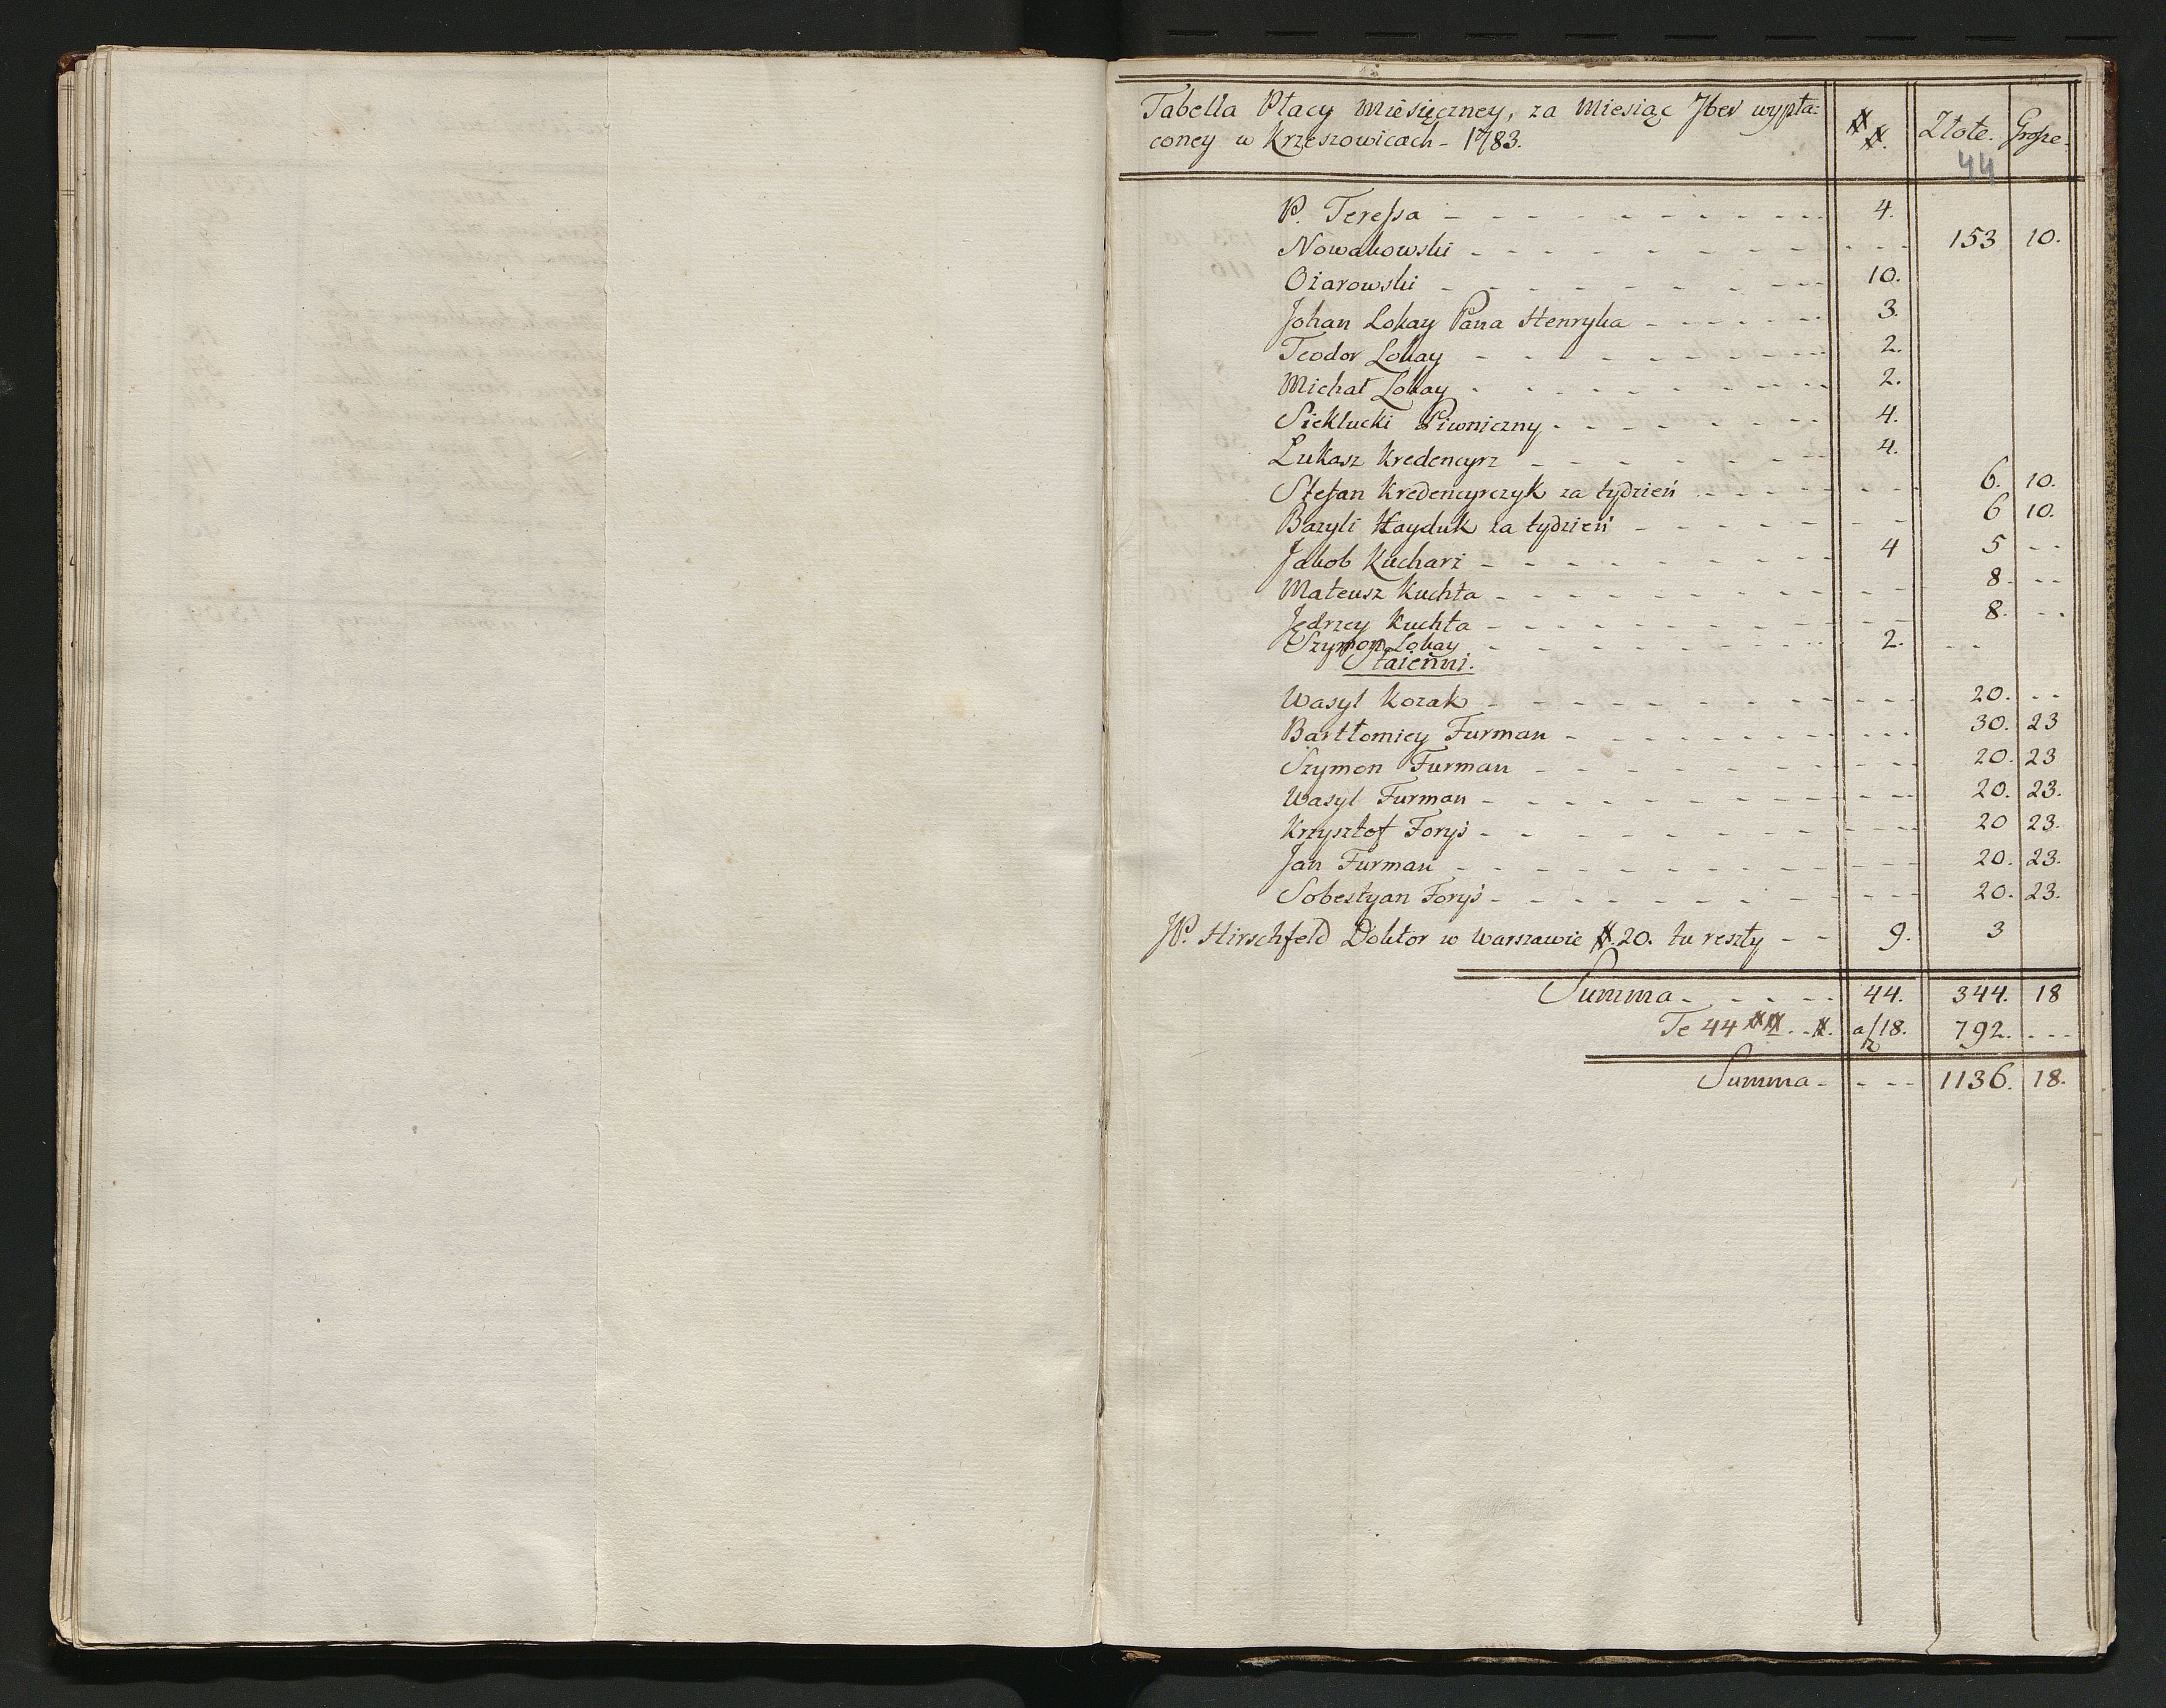 Tabella Płacy Miesięczney, za Miesiąc 7ber wypła=
coney w Krzeszowicach - 1783. ## Złote. Grosze.
44
P. Teressa - - - 4.
Nowakowski - - - 153 10.
Ożarowski - - - 10.
Johan Lokay Pana Henryka - - - 3.
Teodor Lokay - - - 2.
Michał Lokay - - - 2.
Sieklucki Piwniczny - - - 4.
Łukasz Kredencyrz - - - 4.
Stefan Kredencyrczyk za tydzień - - - 6. 10.
Bazyli Hayduk za tydzień - - - 6 10.
Jakob Kucharz - - - 4 5 - -
Mateusz Kuchta - - - 8. - -
Jędrzey Kuchta - - - 8. - -
Szymon Lokay - - - 2. - -
Staienni.
Wasyl Kozak - - - 20. - -
Bartłomiey Furman - - - 30. 23
Szymon Furman - - - 20. 23
Wasyl Furman - - - 20. 23.
Krzysztof Foryś - - - 20 23.
Jan Furman - - - 20. 23.
Sobestyan Foryś - - - 20. 23.
JP. Hirschfeld Doktor w Warszawie #. 20. tu reszty - - 9. 3
Summa - - - 44. 344. 18
Te 44 ## - #. a/18. 792. - - -
Summa - - - 1136. 18.